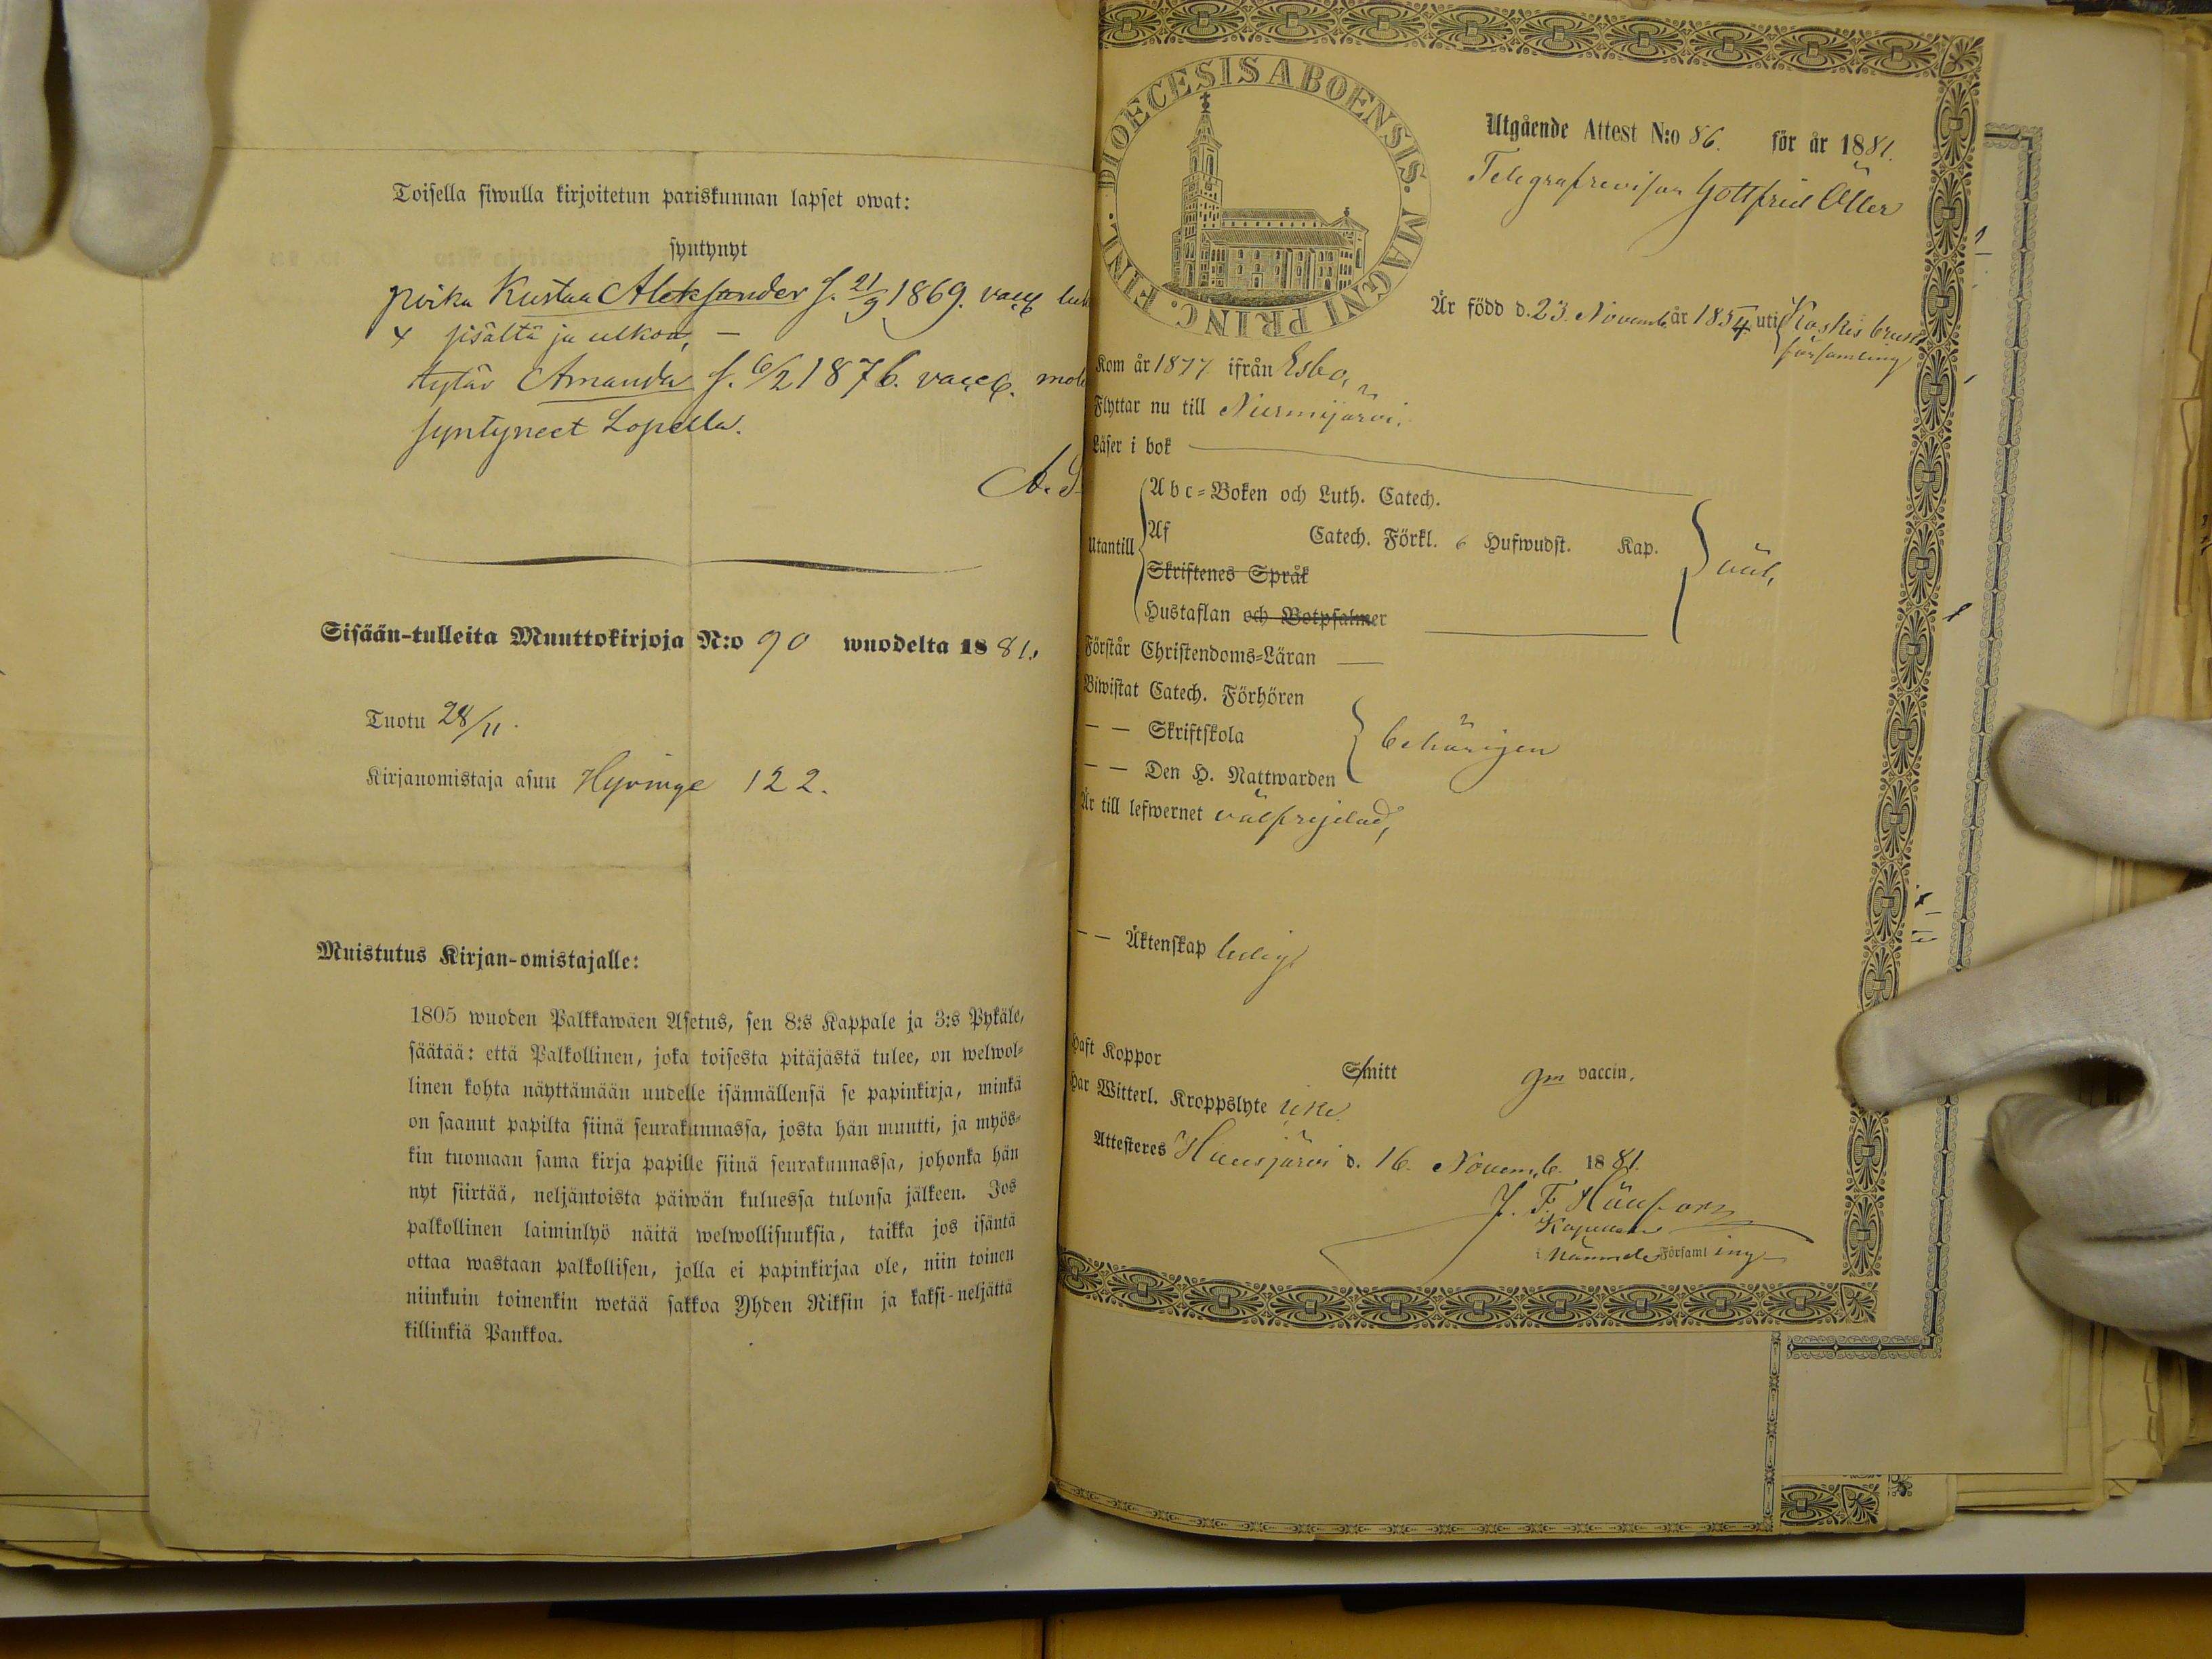 Toisella siwulla kirjoitetun pariskunnan lapset owat:
syntynyt
poika Kustaa Aleksander s. 21/9 1869. vacc
sisältä ja ulkoa, —
tytär Amanda s. 6/2 1876. vacc.
syntyneet Lopella.
Sisään-tulleita Muuttokirjoja N:o 90 wuodelta 1881.
Tuotu 28/11.
Kirjanomistaja asuu Hyvinge 122.
Muistutus Kirjan-omistajalle:
1805 wuoden Palkkawäen Asetus, sen 8:s Kappale ja 3:s Pykäle,
säätää: että Palkollinen, joka toisesta pitäjästä tulee, on welwol-
linen kohta näyttämään uudelle isännällensä se papinkirja, minkä
on saanut papilta siinä seurakunnassa, josta hän muutti, ja myös-
kin tuomaan sama kirja papille siinä seurakunnassa, johonka hän
nyt siirtää, neljäntoista päiwän kuluessa tulonsa jälkeen. Jos
palkollinen laiminlyö näitä welwollisuuksia, taikka jos isäntä
ottaa wastaan palkollisen, jolla ei papinkirjaa ole, niin toinen
niinkuin toinenkin wetää sakkoa Yhden Riksin ja kaksi-neljättä
killinkiä Pankkoa.
DIOECESIS ABOENSIS. MAGNI PRINC. FINL.
Utgående Attest N:o 86. för år 1881.
Telegrafrevisor Gottfrid Öller
Är född d. 23. Novemb. år 1854 uti Koskis bruks
församling
Kom år 1877 ifrån Esbo,
Flyttar nu till Nurmijärvi.
Läser i bok
Utantill
Abc-Boken och Luth. Catech.
Af Catech. Förkl. 6 Hufwudst. Kap.
Skriftenes Språk
Hustaflan och Botpsalmer
väl,
Förstår Christendoms-Läran —
Biwistat Catech. Förhören
— — Skriftskola
— — Den H. Nattwarden
behörigen
Är till lefwernet välfrejdad,
— — Äktenskap ledig,
Haft Koppor Smitt gm vaccin.
Har Witterl. Kroppslyte icke
Attesteres Hausjärvi d. 16. Novemb. 1881.
J. F.
Kapellan
i nämnde Församling